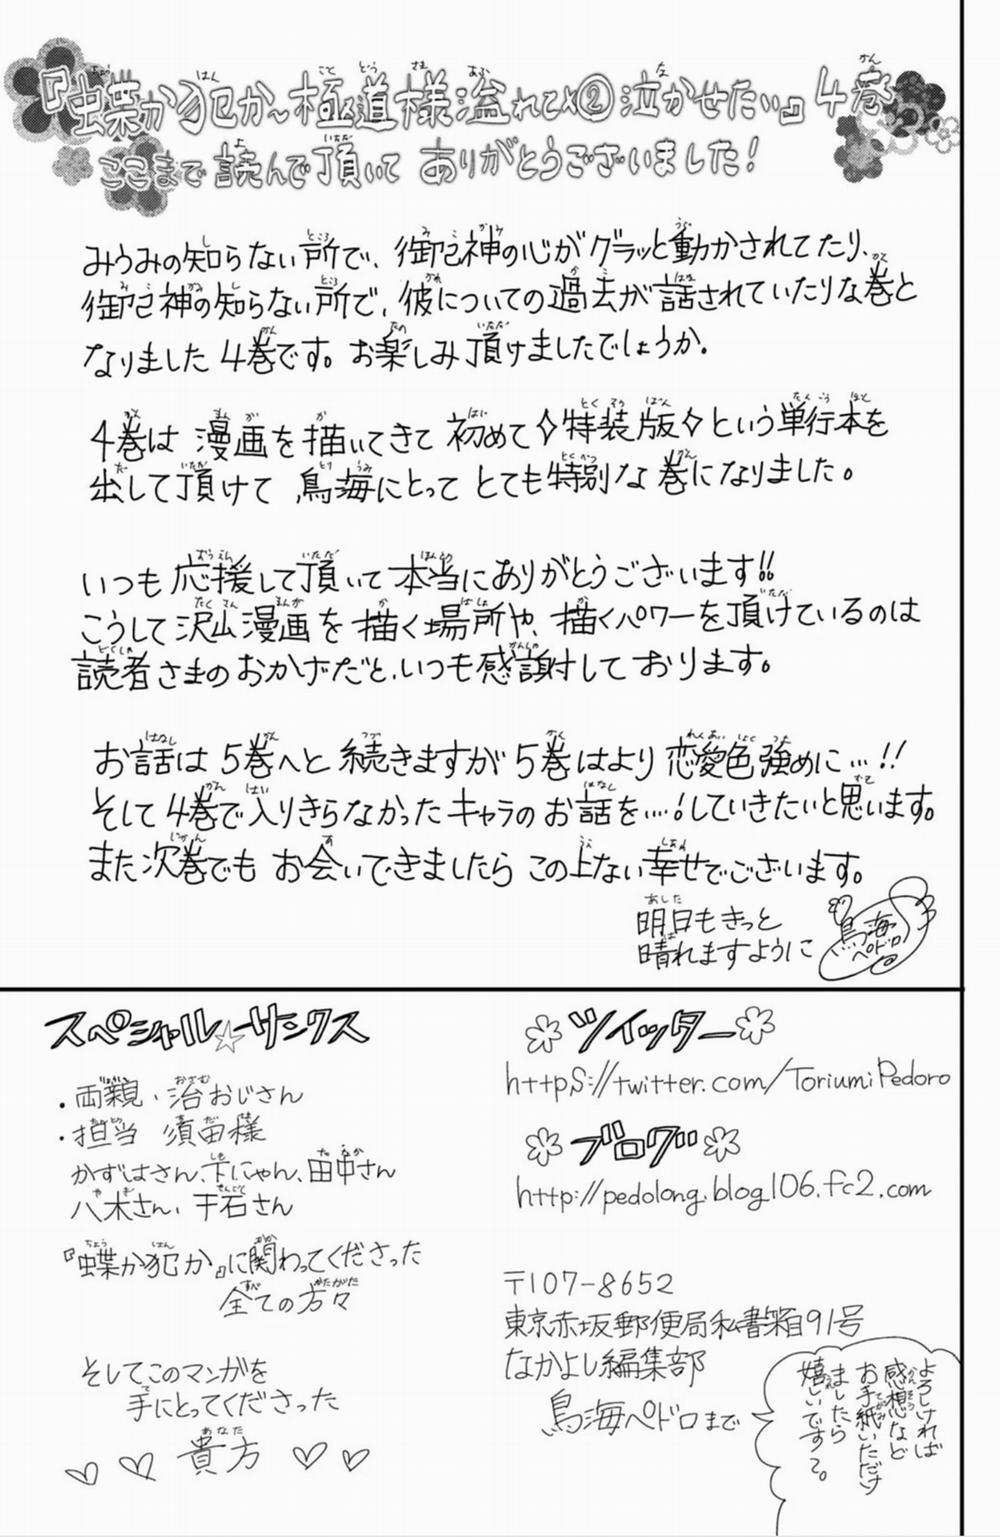 『蝶か犯か～極道様溢れて×②泣かせたい』4巻
ここまで読んで頂いてありがとうございました!
みうみの知らない所で、御己神の心がグラッと動かされてたり、
御己神の知らない所で、彼についての過去が話されていたりな巻と
なりました4巻です。お楽しみ頂けましたでしょうか.
4巻は漫画を描いてきて初めて◇特装版◇という単行本を
出して頂けて、鳥海にとってとても特別な巻になりました。
いつも応援して頂いて本当にありがとうございます!!
こうして沢山漫画を描く場所や、描くパワーを頂けているのは
読者さまのおかげだと、いつも感謝しております。
お話は5巻へと続きますが5巻はより恋愛色強めに…!!
そして4巻で入りきらなかったキャラのお話を…!していきたいと思います。
また次巻でもお会いできましたらこの上ない幸せでございます。
明日もきっと
晴れますように
鳥海
ペドロ
スペシャル☆サンクス
・両親、治おじさん
・担当 須田様
かずはさん、下にゃん、田中さん
八木さん、千石さん
『蝶か犯か』に関わってくださった
全ての方々
そしてこのマンガを
手にとってくださった
♡ ♡ 貴方 ♡ ♡
ツイッター
https://twitter.com/ToriumiPedoro
ブログ
http://pedolong.blog106.fc2.com
〒107-8652
東京赤坂郵便局私書箱91号
なかよし編集部
鳥海ペドロまで
よろしければ
感想など
お手紙いただけ
ましたら
嬉しいです〜。